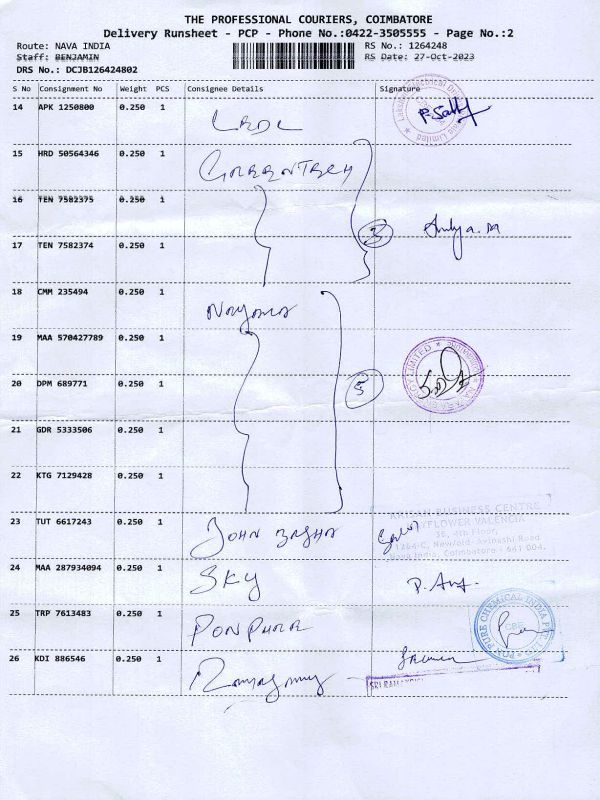 THE PROFESSIONAL COURIERS, COIMBATORE
Delivery Runsheet - PCP - Phone No.:0422-3505555 - Page No.:2
Route: NAVA INDIA RS No.: 1264248
Staff: BENJAMIN RS Date: 27-Oct-2023
DRS No.: DCJB126424802
S No Consignment No Weight PCS Consignee Details Signature
14 APK 1250800 0.250 1
15 HRD 50564346 0.250 1
16 TEN 7582375 0.250 1
17 TEN 7582374 0.250 1 3
18 CMM 235494 0.250 1
19 MAA 570427789 0.250 1
20 DPM 689771 0.250 1 5
21 GDR 5333506 0.250 1
22 KTG 7129428 0.250 1
BUSINESS CENTRE
MAYFLOWER VALENCIA
4th Floor,
1264-C, New/old-Avinashi Road
Nava India, Coimbatore - 641 004.
23 TUT 6617243 0.250 1 JOHN
24 MAA 287934094 0.250 1 SKY
25 TRP 7613483 0.250 1 PONPURE
PON PURE CHEMICAL INDIA
CBE
26 KDI 886546 0.250 1